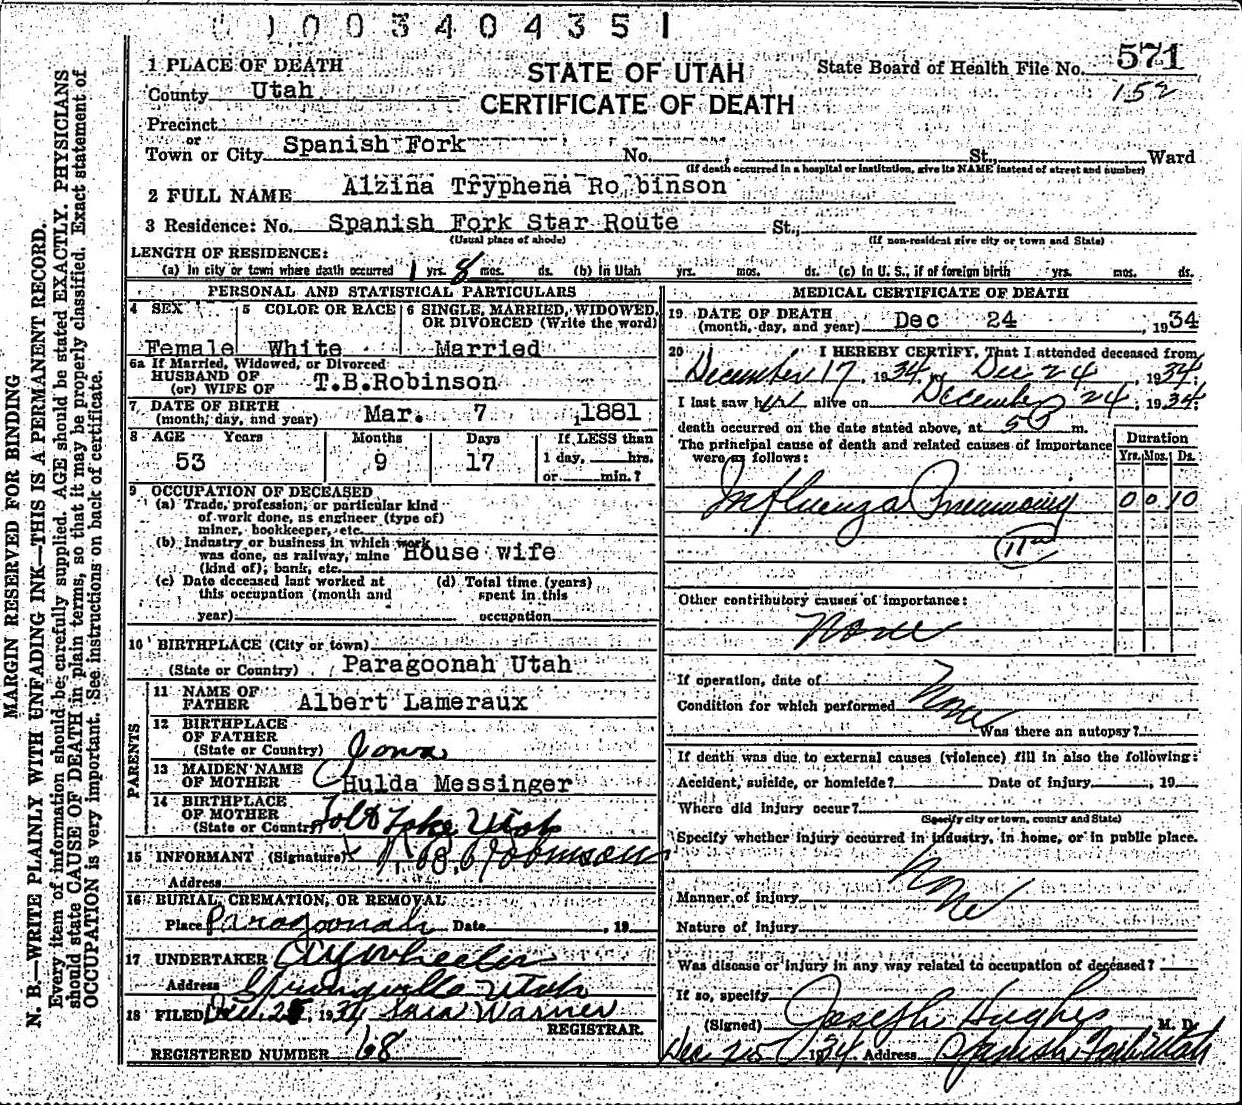 0 1 0 0 3 4 0 4 3 5 1
STATE OF UTAH
CERTIFICATE OF DEATH
State Board of Health File No. 571
152
1 PLACE OF DEATH
County Utah
Precinct
or
Town or City Spanish Fork No. , St., Ward
(If death occurred in a hospital or institution, give its NAME instead of street and number)
2 FULL NAME Alzina Tryphena Ro binson
3 Residence: No. Spanish Fork Star Route St.,
(Usual place of abode) (If non-resident give city or town and State)
LENGTH OF RESIDENCE:
(a) In city or town where death occurred 1 yrs. 8 mos. ds. (b) In Utah yrs. mos. ds. (c) In U. S., if of foreign birth yrs. mos. ds.
PERSONAL AND STATISTICAL PARTICULARS
4 SEX 5 COLOR OR RACE 6 SINGLE, MARRIED, WIDOWED, OR DIVORCED (Write the word)
Female White Married
6a If Married, Widowed, or Divorced
HUSBAND OF
(or) WIFE OF T.B.Robinson
7 DATE OF BIRTH
(month, day, and year) Mar. 7 1881
8 AGE Years Months Days If LESS than
53 9 17 1 day, hrs.
or min.?
9 OCCUPATION OF DECEASED
(a) Trade, profession, or particular kind
of work done, as engineer (type of)
miner, bookkeeper, etc.
(b) Industry or business in which work
was done, as railway, mine House wife
(kind of), bank, etc.
(c) Date deceased last worked at (d) Total time (years)
this occupation (month and spent in this
year) occupation
10 BIRTHPLACE (City or town)
(State or Country) Paragoonah Utah
PARENTS
11 NAME OF
FATHER Albert Lameraux
12 BIRTHPLACE
OF FATHER
(State or Country) Iowa
13 MAIDEN NAME
OF MOTHER Hulda Messinger
14 BIRTHPLACE
OF MOTHER
(State or Country) Lake Utah
15 INFORMANT (Signature) x T. B. Robinson
Address
16 BURIAL, CREMATION, OR REMOVAL
Place Paragoonah Date , 19
17 UNDERTAKER A Y Wheeler
Address Springville Utah
18 FILED Dec. , 1934 Sara Warner
REGISTRAR.
REGISTERED NUMBER 68
MEDICAL CERTIFICATE OF DEATH
19 DATE OF DEATH
(month, day, and year) Dec 24 , 1934
20 I HEREBY CERTIFY, That I attended deceased from
December 17, 1934, to Dec 24, 1934
I last saw her alive on December 24, 1934
death occurred on the date stated above, at 5 P m.
The principal cause of death and related causes of importance
were as follows:
Duration
Yrs. Mos. Ds.
Influenza Pneumonia 0 0 10
11a
Other contributory causes of importance:
None
If operation, date of
Condition for which performed None
Was there an autopsy?
If death was due to external causes (violence) fill in also the following:
Accident, suicide, or homicide? Date of injury , 19
Where did injury occur?
(Specify city or town, county and State)
Specify whether injury occurred in industry, in home, or in public place.
None
Manner of injury
Nature of injury
Was disease or injury in any way related to occupation of deceased?
If so, specify
(Signed) Joseph Hughes M. D.
Dec 25 1934 Address Spanish Fork Utah
MARGIN RESERVED FOR BINDING
N. B.—WRITE PLAINLY WITH UNFADING INK—THIS IS A PERMANENT RECORD.
Every item of information should be carefully supplied. AGE should be stated EXACTLY. PHYSICIANS
should state CAUSE OF DEATH in plain terms, so that it may be properly classified. Exact statement of
OCCUPATION is very important. See instructions on back of certificate.